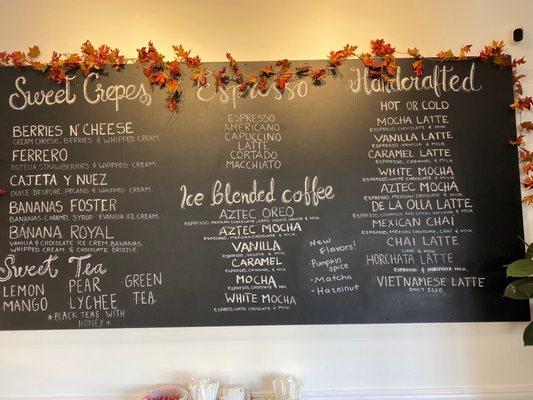 Sweet Crepes
BERRIES N' CHEESE
CREAM CHEESE, BERRIES & WHIPPED CREAM.
FERRERO
NUTELLA STRAWBERRIES & WHIPPED CREAM.
CAJETA Y NUEZ
DULCE DELECHE, PECANS & WHIPPED CREAM.
BANANAS FOSTER
BANANAS, CARAMEL SYRUP & VANILLA ICE CREAM.
BANANA ROYAL
VANILLA & CHOCOLATE ICE CREAM, BANANAS,
WHIPPED CREAM & CHOCOLATE DRIZZLE.
Sweet Tea
LEMON
MANGO
PEAR
LYCHEE
GREEN
TEA
*BLACK TEAS WITH
HONEY*
Espresso
ESPRESSO
AMERICANO
CAPUCCINO
LATTE
CORTADO
MACCHIATO
Ice Blended coffee
AZTEC OREO
ESPRESSO, MEXICAN CHOCOLATE, OREO COOKIE & MILK.
AZTEC MOCHA
ESPRESSO, MEXICAN CHOCOLATE & MILK.
VANILLA
ESPRESSO, VANILLA & MILK.
CARAMEL
ESPRESSO, CARAMEL & MILK.
MOCHA
ESPRESSO, CHOCOLATE & MILK.
WHITE MOCHA
ESPRESSO, WHITE CHOCOLATE & MILK.
New
Flavors!
Pumpkin
spice
- Matcha
- Hazelnut
Handcrafted
HOT OR COLD
MOCHA LATTE
ESPRESSO, CHOCOLATE & MILK.
VANILLA LATTE
ESPRESSO, VANILLA & MILK.
CARAMEL LATTE
ESPRESSO, CARAMEL & MILK.
WHITE MOCHA
ESPRESSO, WHITE CHOCOLATE & MILK.
AZTEC MOCHA
ESPRESSO, MEXICAN CHOCOLATE & MILK.
DE LA OLLA LATTE
ESPRESSO, CINNAMON AND & MILK.
MEXICAN CHAI
ESPRESSO, MEXICAN CHOCOLATE, CHAI & MILK.
CHAI LATTE
CHAI & MILK.
HORCHATA LATTE
ESPRESSO & HORCHATA MILK.
VIETNAMESE LATTE
ONLY ICED.